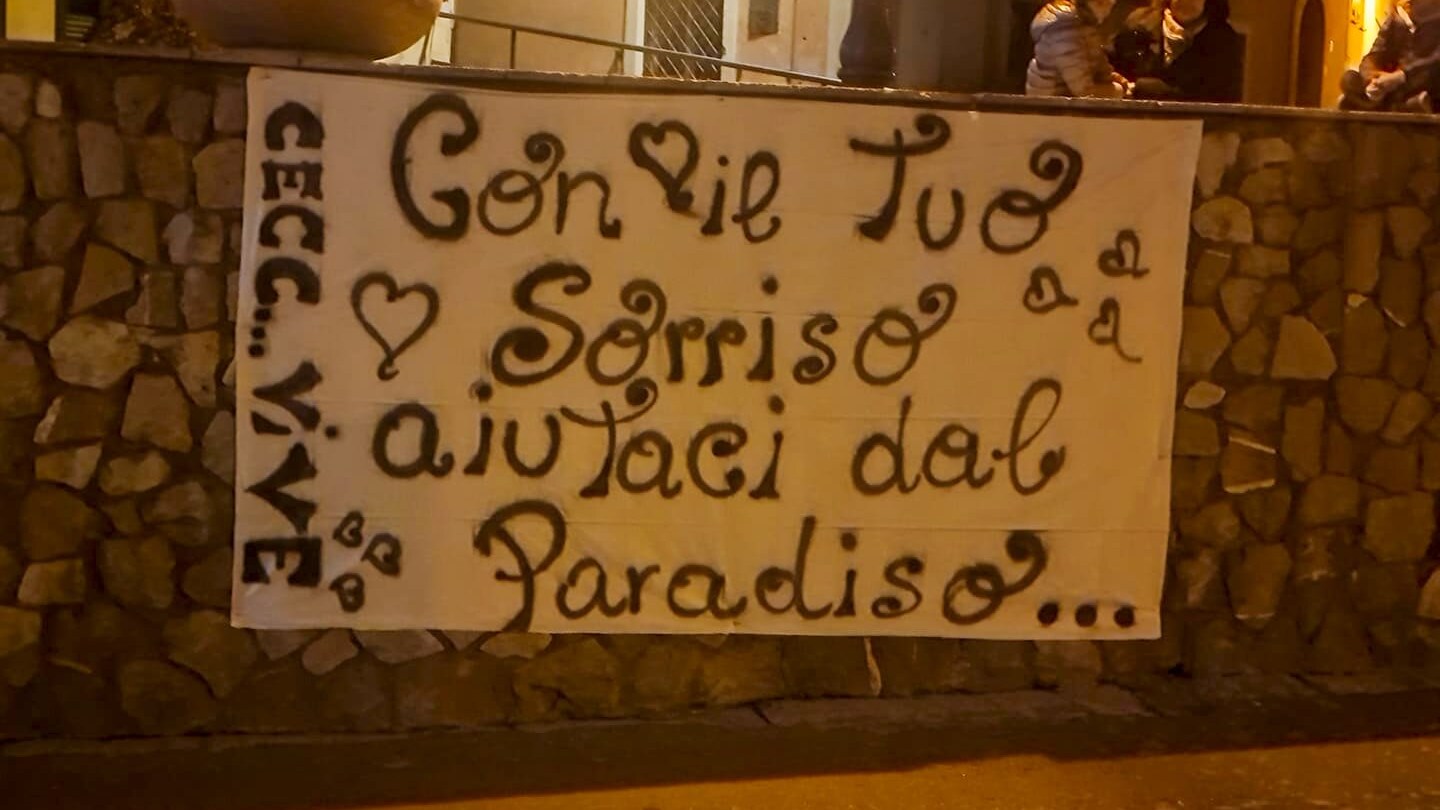 CECC... ViVE
Con il Tuo
Sorriso
aiutaci dal
Paradiso...